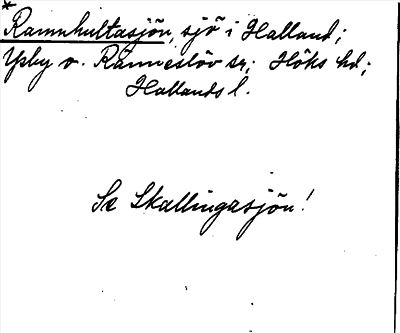 *
Ramnhultasjön, sjö i Halland;
Ysby o. Ränneslöv sn; Höks hd;
Hallands l.
Se Skallingasjön!